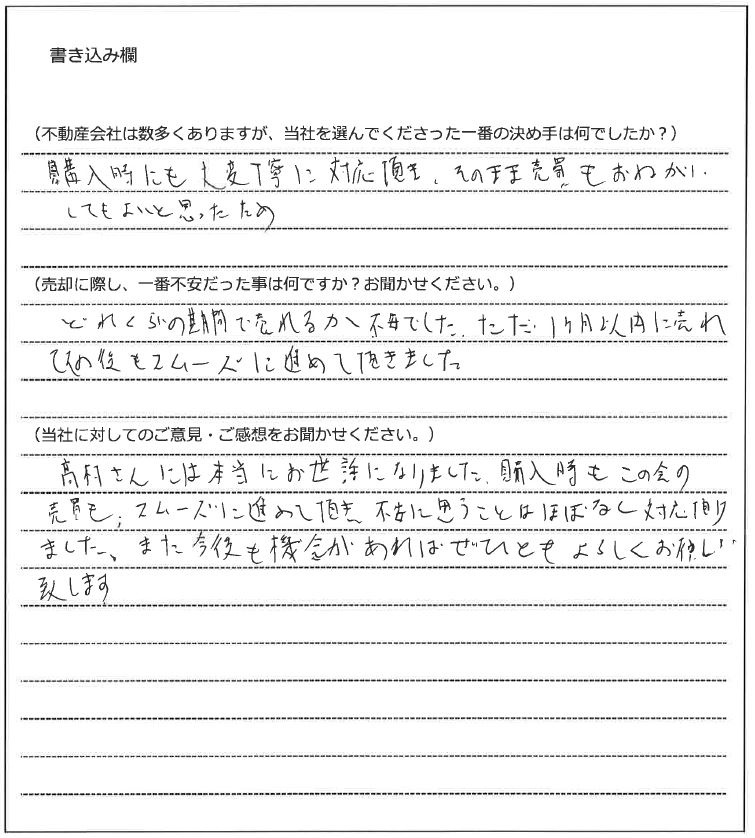 書き込み欄
（不動産会社は数多くありますが、当社を選んでくださった一番の決め手は何でしたか？）
購入時にも大変丁寧に対応頂き、そのまま売買もおねがい
してもよいと思ったため
（売却に際し、一番不安だった事は何ですか？お聞かせください。）
どれくらいの期間で売れるか不安でした。ただ、1ヶ月以内に売れ
その後もスムーズに進めて頂きました。
（当社に対してのご意見・ご感想をお聞かせください。）
高村さんには本当にお世話になりました。購入時もこの会の
売買も、スムーズに進めて頂き、不安に思うことはほぼなし対応頂け
ました。また今後も機会があればぜひともよろしくお願い
致します